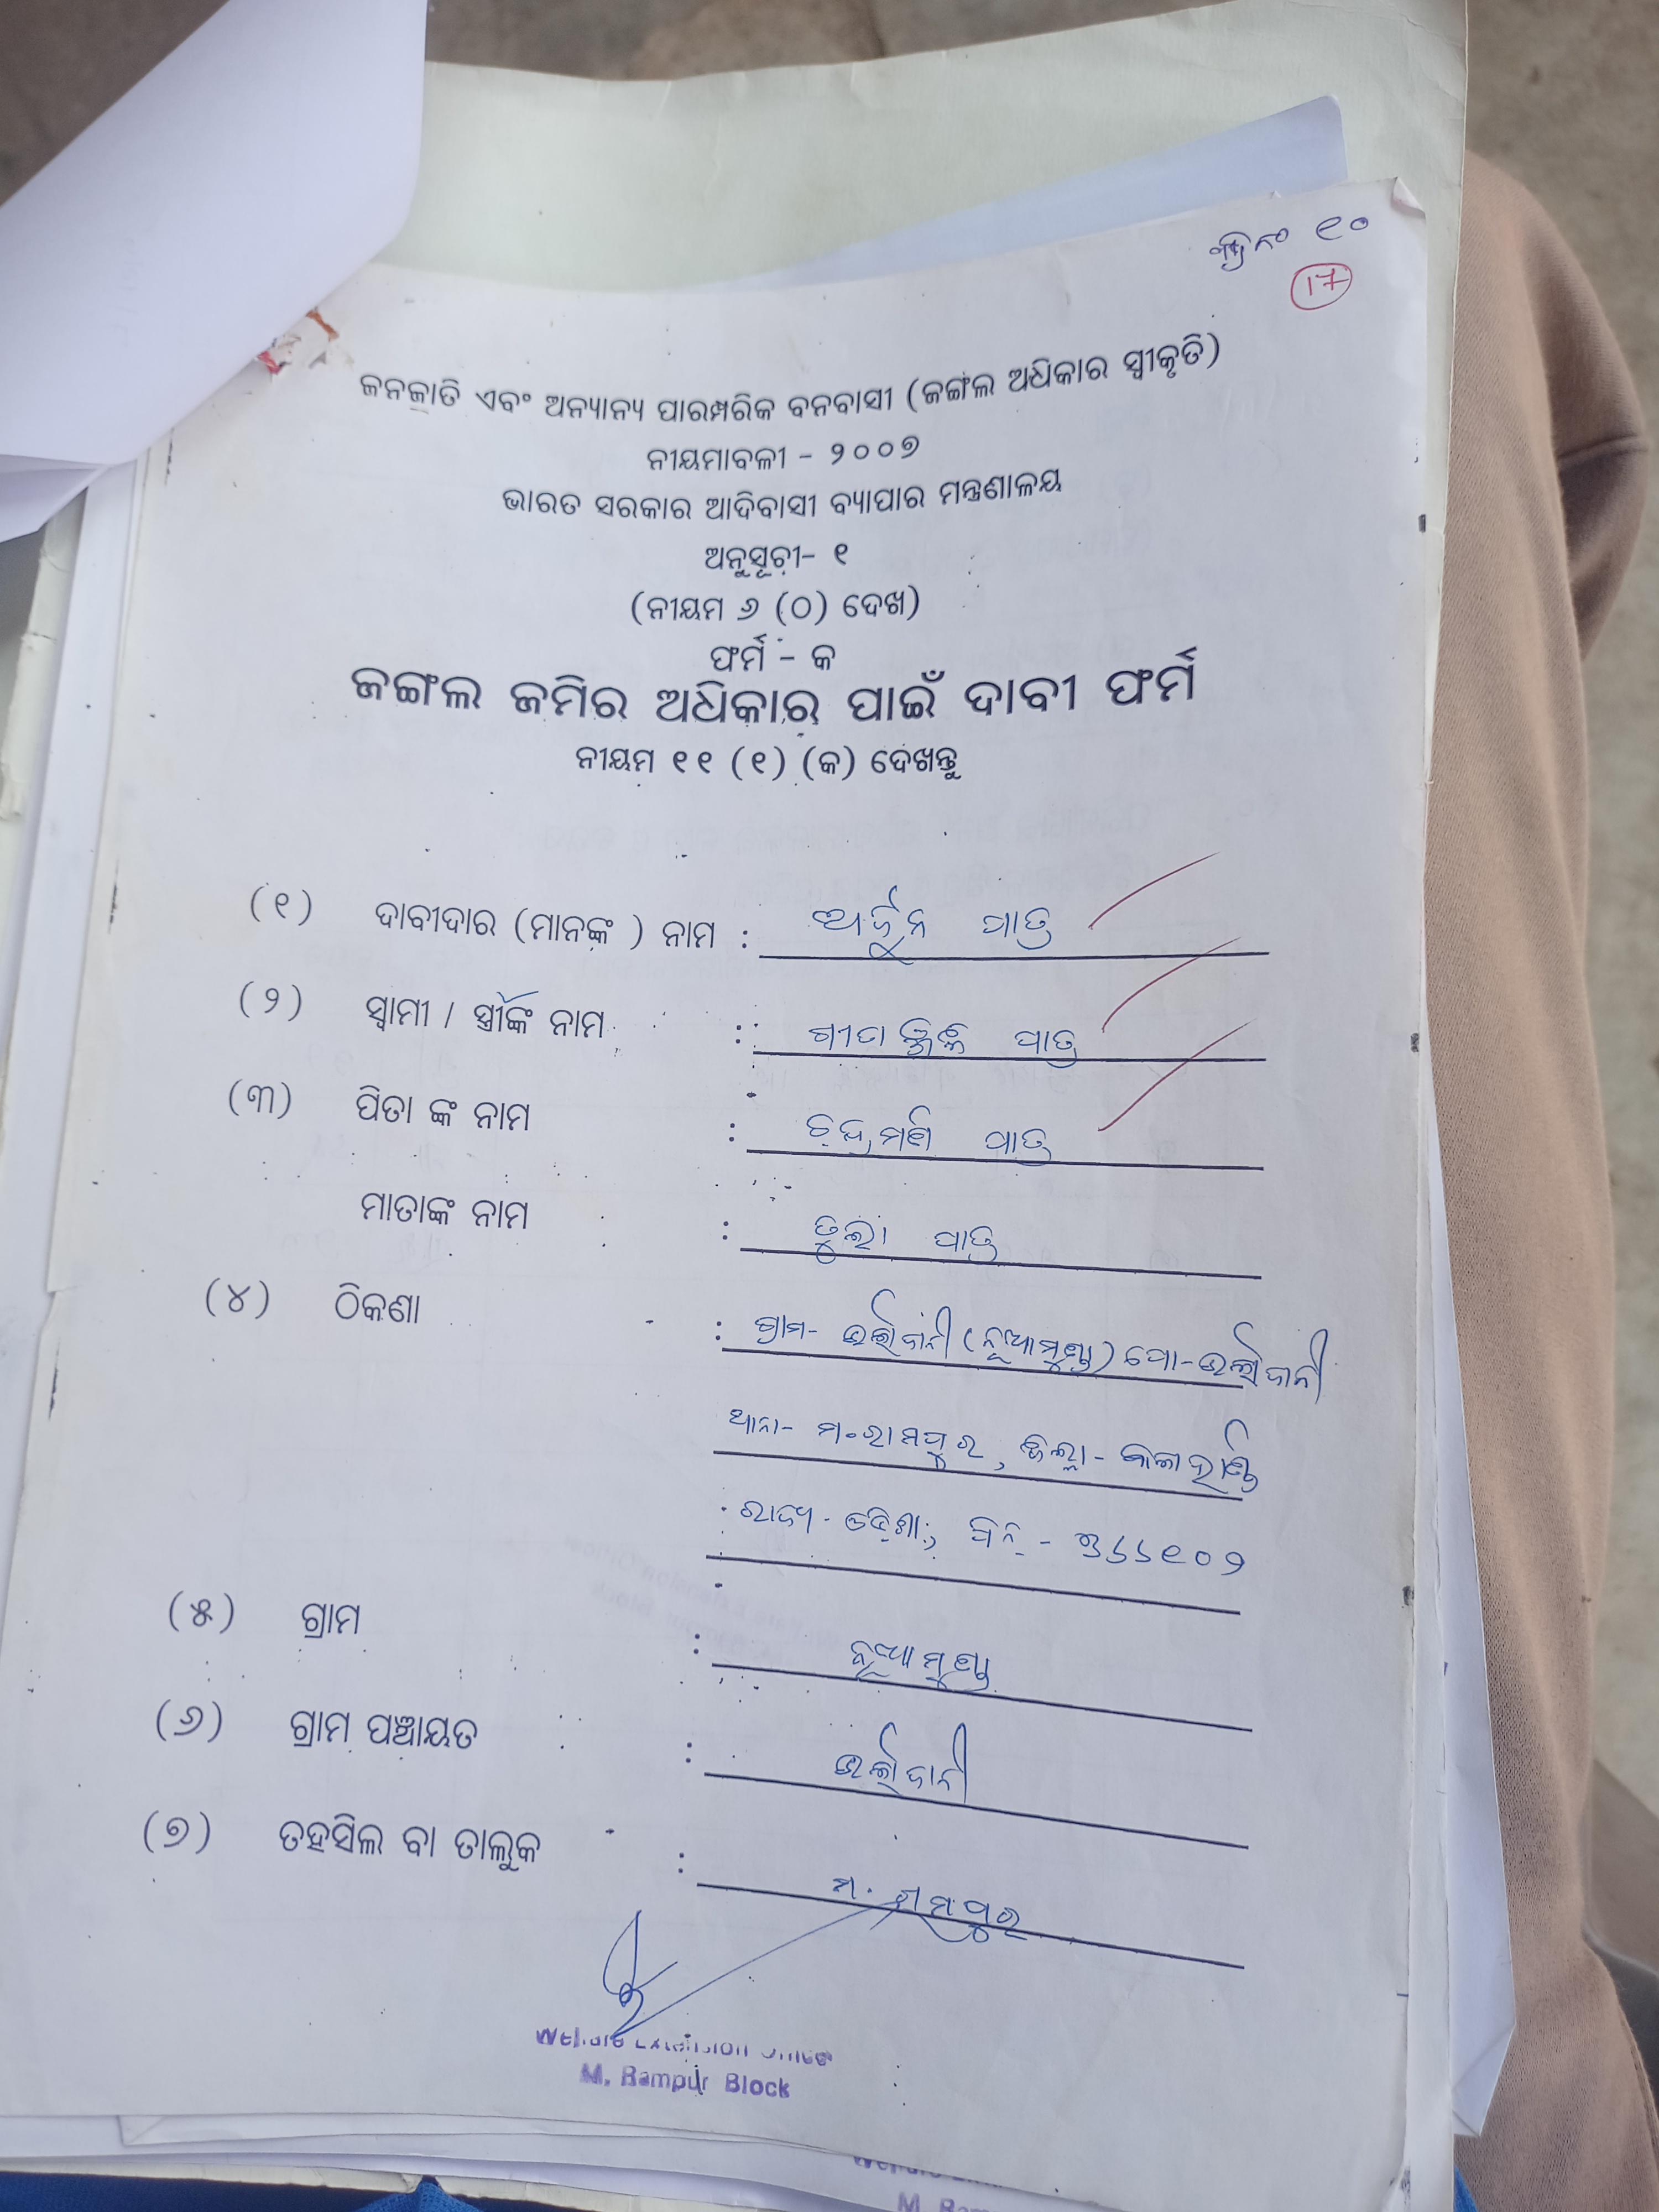 ୧୦
17
ଜନଜାତି ଏବଂ ଅନ୍ୟାନ୍ୟ ପାରମ୍ପରିକ ବନବାସୀ (ଜଙ୍ଗଲ ଅଧିକାର ସ୍ୱୀକୃତି)
ନୀୟମାବଳୀ - ୨୦୦୭
ଭାରତ ସରକାର ଆଦିବାସୀ ବ୍ୟାପାର ମନ୍ତ୍ରଣାଳୟ
ଅନୁସୂଚୀ- ୧
(ନୀୟମ ୬ (୦) ଦେଖ)
ଫର୍ମ - କ
ଜଙ୍ଗଲ ଜମିର ଅଧିକାର ପାଇଁ ଦାବୀ ଫର୍ମ
ନୀୟମ ୧୧ (୧) (କ) ଦେଖନ୍ତୁ
(୧) ଦାବୀଦାର (ମାନଙ୍କ ) ନାମ : ଅର୍ଜୁନ ପାତ୍ର
(୨) ସ୍ୱାମୀ / ସ୍ତ୍ରୀଙ୍କ ନାମ : ଗୀତାଞ୍ଜଳି ପାତ୍ର
(୩) ପିତା ଙ୍କ ନାମ : ଚନ୍ଦ୍ରମଣି ପାତ୍ର
ମାତାଙ୍କ ନାମ : ତୁଲା ପାତ୍ର
(୪) ଠିକଣା : ଗ୍ରାମ- (ନୂଆମୁଣ୍ଡା) ପୋ-
ଥାନା- ମ.ରାମପୁର, ଜିଲ୍ଲା- କଳାହାଣ୍ଡି
ରାଜ୍ୟ- ଓଡ଼ିଶା, ପିନ୍ - ୭୬୬୧୦୨
(୫) ଗ୍ରାମ : ନୂଆମୁଣ୍ଡା
(୬) ଗ୍ରାମ ପଞ୍ଚାୟତ :
(୭) ତହସିଲ ବା ତାଲୁକ : ମ. ରାମପୁର
Welfare Extension Officer
M. Rampur Block